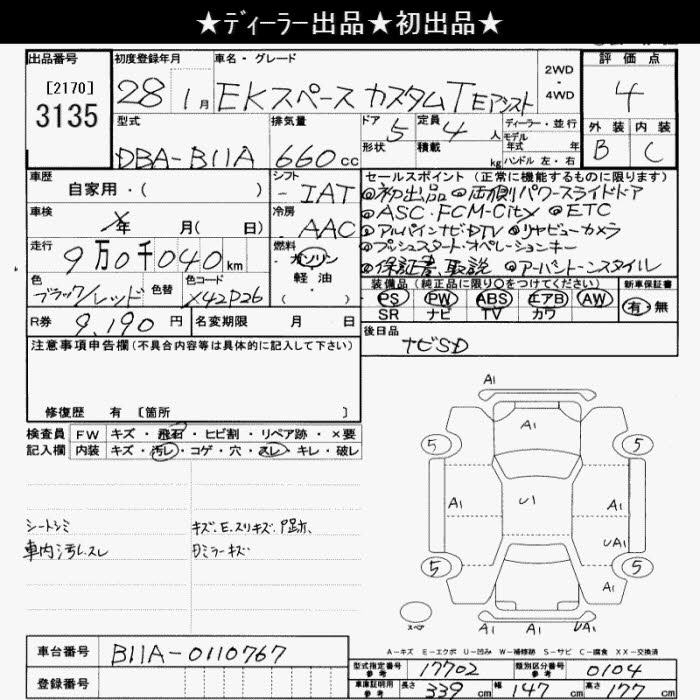 ★ディーラー出品★初出品★
出品番号
[2170]
3135
初度登録年月
28 1月
車名・グレード
EKスペースカスタムTEアシスト
2WD
・
4WD
評価点
4
外装 内装
B C
型式
DBA-B11A
排気量
660cc
ドア
5
定員
4人
形状
積載
kg
ディーラー・並行
モデル
年式 年
ハンドル 左・右
車歴
自家用・( )
シフト
IAT
車検
年 月( 日)
冷房
AAC
走行
9万0千040km
燃料
ガソリン
軽油
( )
色
ブラック/レッド
色替
色コード
X42P26
セールスポイント (正常に機能するものに限ります)
◎初出品 ◎両側パワースライドドア
◎ASC・FCM-City ◎ETC
◎アルパインナビDTV ◎リヤビューカメラ
◎プッシュスタート・オペレーションキー
◎保証書、取説 ◎アーバントーンスタイル
装備品(純正品に限り○をつけてください)
PS PW ABS エアB AW
SR ナビ TV カワ
新車保証書
有・無
R券
9,190円
名変期限 月 日
後日品
ナビSD
注意事項申告欄(不具合内容等は具体的に記入して下さい)
修復歴 有 〔箇所 〕
検査員
記入欄
FW キズ・飛石・ヒビ割・リペア跡・×要
内装 キズ・汚レ・コゲ・穴・スレ・キレ・破レ
シートシミ
車内汚レスレ
キズ、E、スリキズ、P跡、
ミラーキズ
A1
A1
5 5
A1 U1 A1
UA1
5 5
A1
スペア
A1 A1 UA1
A-キズ E-エクボ U-凹み W-補修跡 S-サビ C-腐食 XX-交換済
車台番号
B11A-0110767
登録番号
型式指定番号
参考
17702
類別区分番号
参考
0104
車庫証明用
参考
長さ 339cm 幅 147cm 高さ 177cm